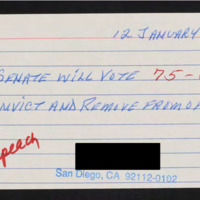 12 JANUARY
SENATE WILL VOTE 75-
NVICT AND REMOVE FROM O
peach
San Diego, CA 92112-0102